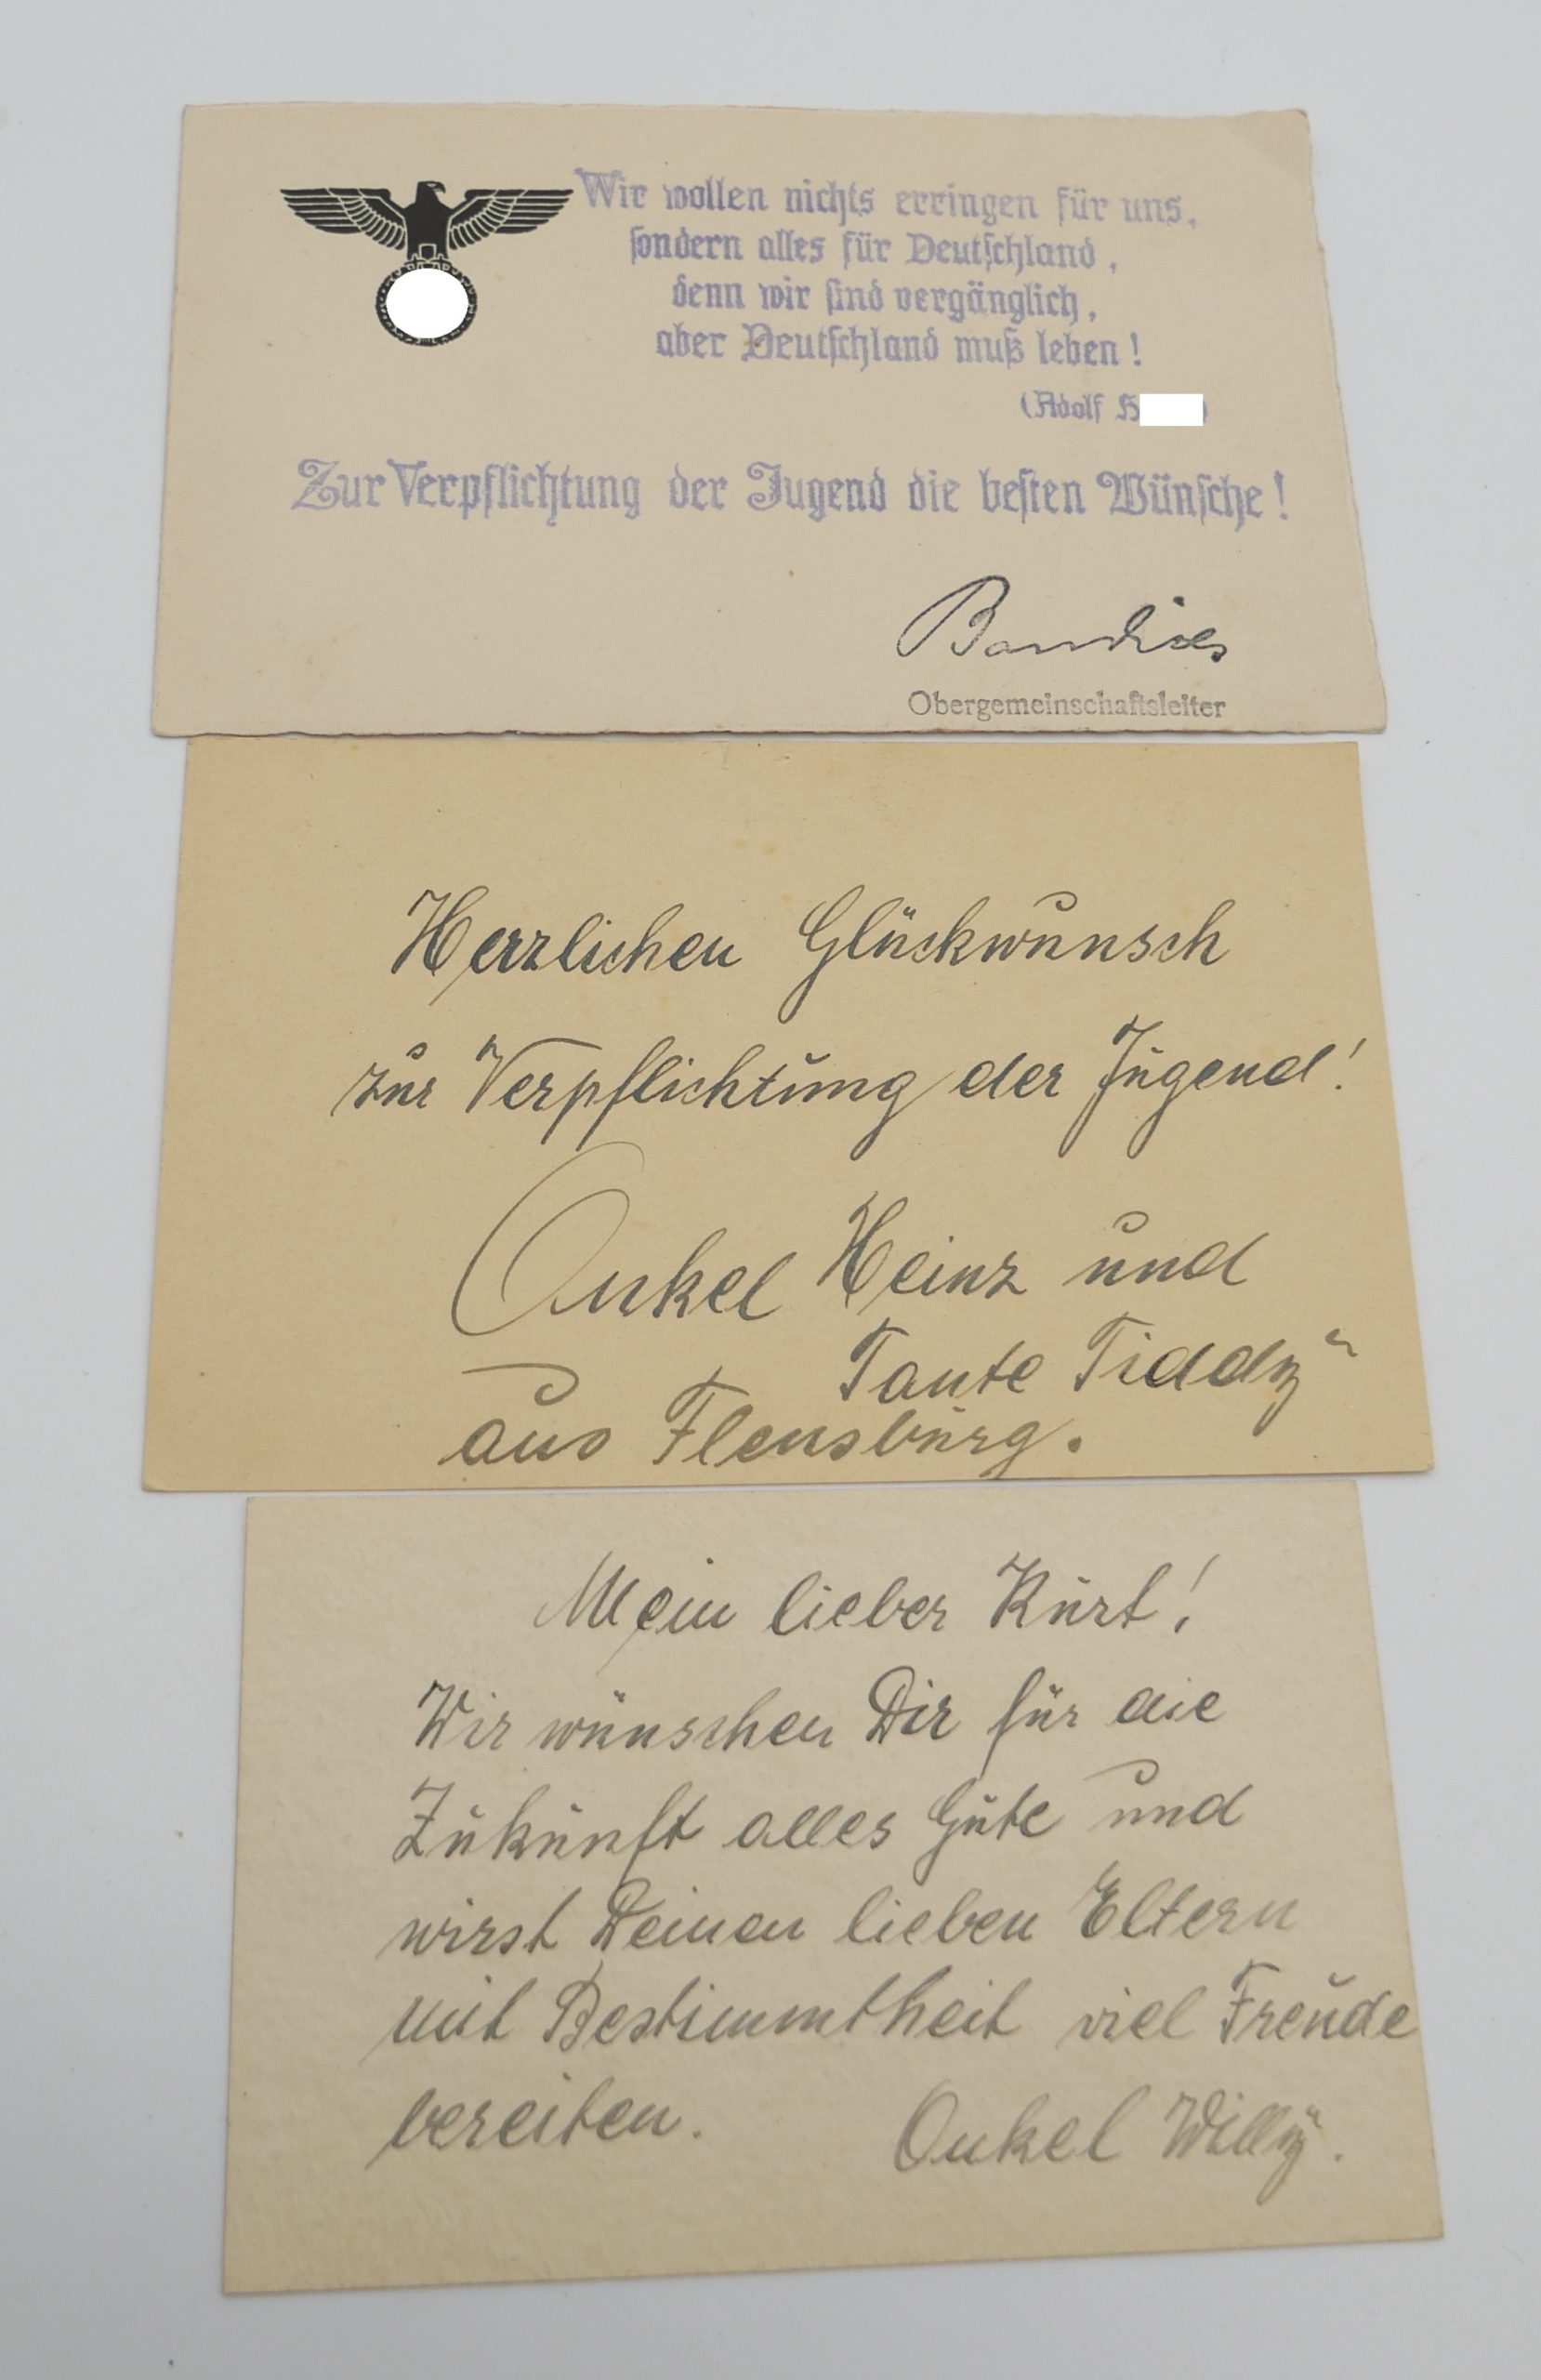 Wir wollen nichts erringen für uns,
sondern alles für Deutschland,
denn wir sind vergänglich,
aber Deutschland muß leben!
(Adolf H
Zur Verpflichtung der Jugend die besten Wünsche!
Obergemeinschaftsleiter
Herzlichen Glückwunsch
zur Verpflichtung der Jugend!
Onkel Heinz und
Tante Tiddy
aus Flensburg.
Mein lieber Kurt!
Wir wünschen Dir für die
Zukunft alles Gute und
wirst Deinen lieben Eltern
mit Bestimmtheit viel Freude
bereiten. Onkel Willy.